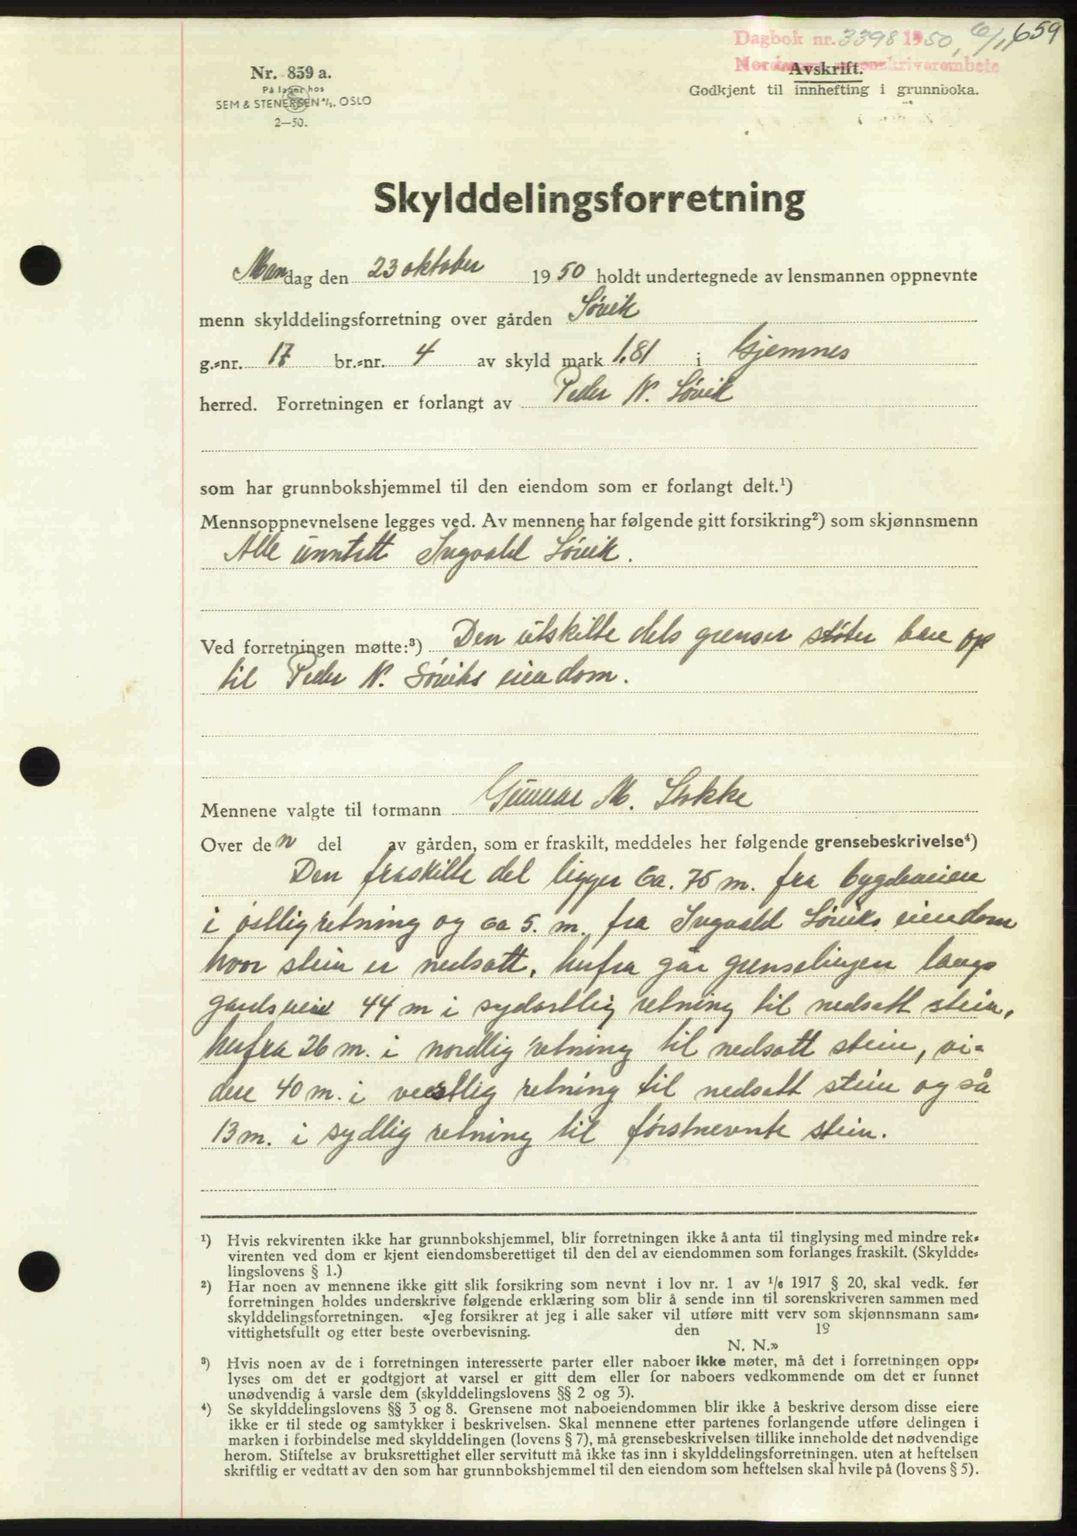 Dagbok nr. 3398 1950, 6/11 659
Nr. 859 a.
På lager hos
SEM & STENERSEN A/S, OSLO
2—50.
Avskrift.
Godkjent til innhefting i grunnboka.
Skylddelingsforretning
Mandag den 23 oktober 1950 holdt undertegnede av lensmannen oppnevnte
menn skylddelingsforretning over gården Søvik
g.-nr. 17 br.-nr. 4 av skyld mark 1,81 i Gjemnes
herred. Forretningen er forlangt av Peder N. Søvik
som har grunnbokshjemmel til den eiendom som er forlangt delt.¹)
Mennsoppnevnelsene legges ved. Av mennene har følgende gitt forsikring²) som skjønnsmenn
Alle unntatt Ingvald Søvik.
Ved forretningen møtte:³) Den utskilte dels grenser støter bare op
til Peder N. Søviks eiendom.
Mennene valgte til formann Gunnar M. Stokke
Over den del av gården, som er fraskilt, meddeles her følgende grensebeskrivelse⁴)
Den fraskilte del ligger ca. 75 m. fra bygdeveien
i østlig retning og ca 5. m. fra Ingvald Søviks eiendom
hvor stein er nedsatt, herfra går grenselinjen langs
gardsveien 44 m i sydøstlig retning til nedsatt stein,
herfra 26 m. i nordlig retning til nedsatt stein, vi-
dere 40 m. i vestlig retning til nedsatt stein og så
13 m. i sydlig retning til førstnevnte stein.
¹) Hvis rekvirenten ikke har grunnbokshjemmel, blir forretningen ikke å anta til tinglysing med mindre rek-
virenten ved dom er kjent eiendomsberettiget til den del av eiendommen som forlanges fraskilt. (Skyldde-
lingslovens § 1.)
²) Har noen av mennene ikke gitt slik forsikring som nevnt i lov nr. 1 av 1/6 1917 § 20, skal vedk. før
forretningen holdes underskrive følgende erklæring som blir å sende inn til sorenskriveren sammen med
skylddelingsforretningen. «Jeg forsikrer at jeg i alle saker vil utføre mitt verv som skjønnsmann sam-
vittighetsfullt og etter beste overbevisning. den 19
N. N.»
³) Hvis noen av de i forretningen interesserte parter eller naboer ikke møter, må det i forretningen opp-
lyses om det er godtgjort at varsel er gitt dem eller for naboers vedkommende om det er funnet
unødvendig å varsle dem (skylddelingslovens §§ 2 og 3).
⁴) Se skylddelingslovens §§ 3 og 8. Grensene mot naboeiendommen blir ikke å beskrive dersom disse eiere
ikke er til stede og samtykker i beskrivelsen. Skal mennene etter partenes forlangende utføre delingen i
marken i forbindelse med skylddelingen (lovens § 7), må grensebeskrivelsen tillike inneholde det nødvendige
herom. Stiftelse av bruksrettighet eller servitutt må ikke tas inn i skylddelingsforretningen, uten at heftelsen
skriftlig er vedtatt av den som har grunnbokshjemmel til den eiendom som heftelsen skal hvile på (lovens § 5).